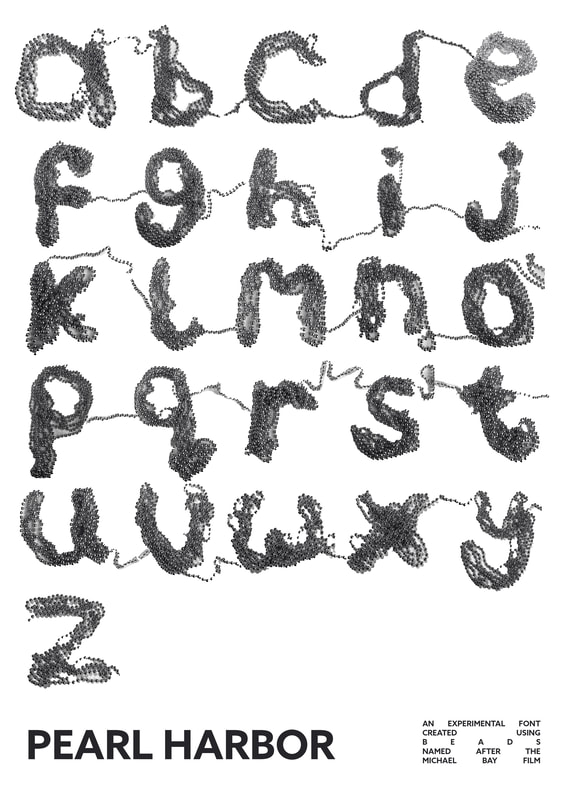 a b c d e
f g h i j
k l m n o
p q r s t
u v w x y
z
PEARL HARBOR
AN EXPERIMENTAL FONT
CREATED USING
B E A D S
NAMED AFTER THE
MICHAEL BAY FILM